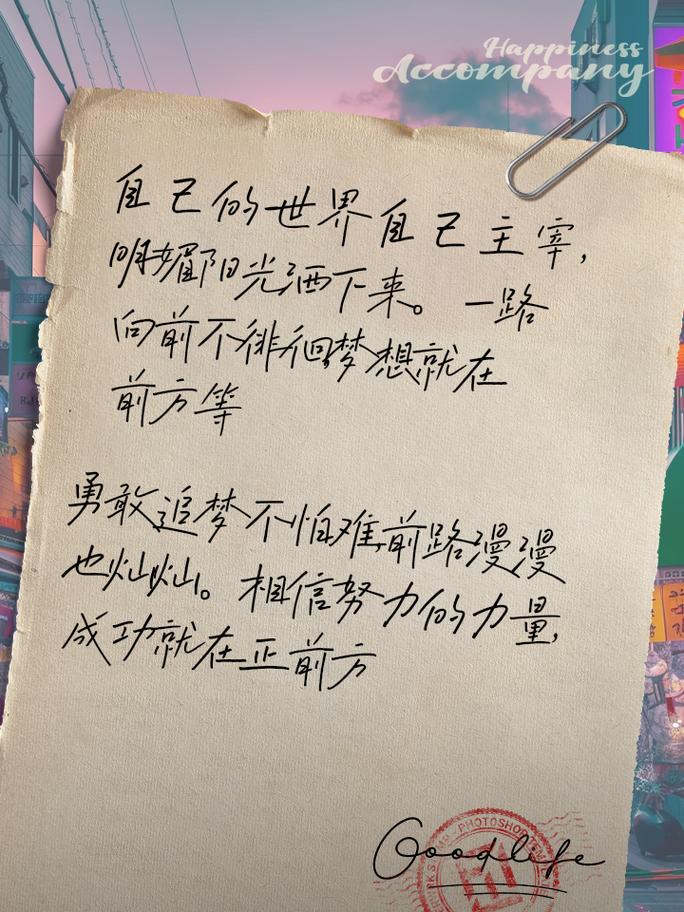 Happiness
Accompany
自己的世界自己主宰,
明媚阳光洒下来。一路
向前不徘徊梦想就在
前方等
勇敢追梦不怕难,前路漫漫
也灿灿。相信努力的力量,
成功就在正前方
PHOTOSHOP
Goodlife